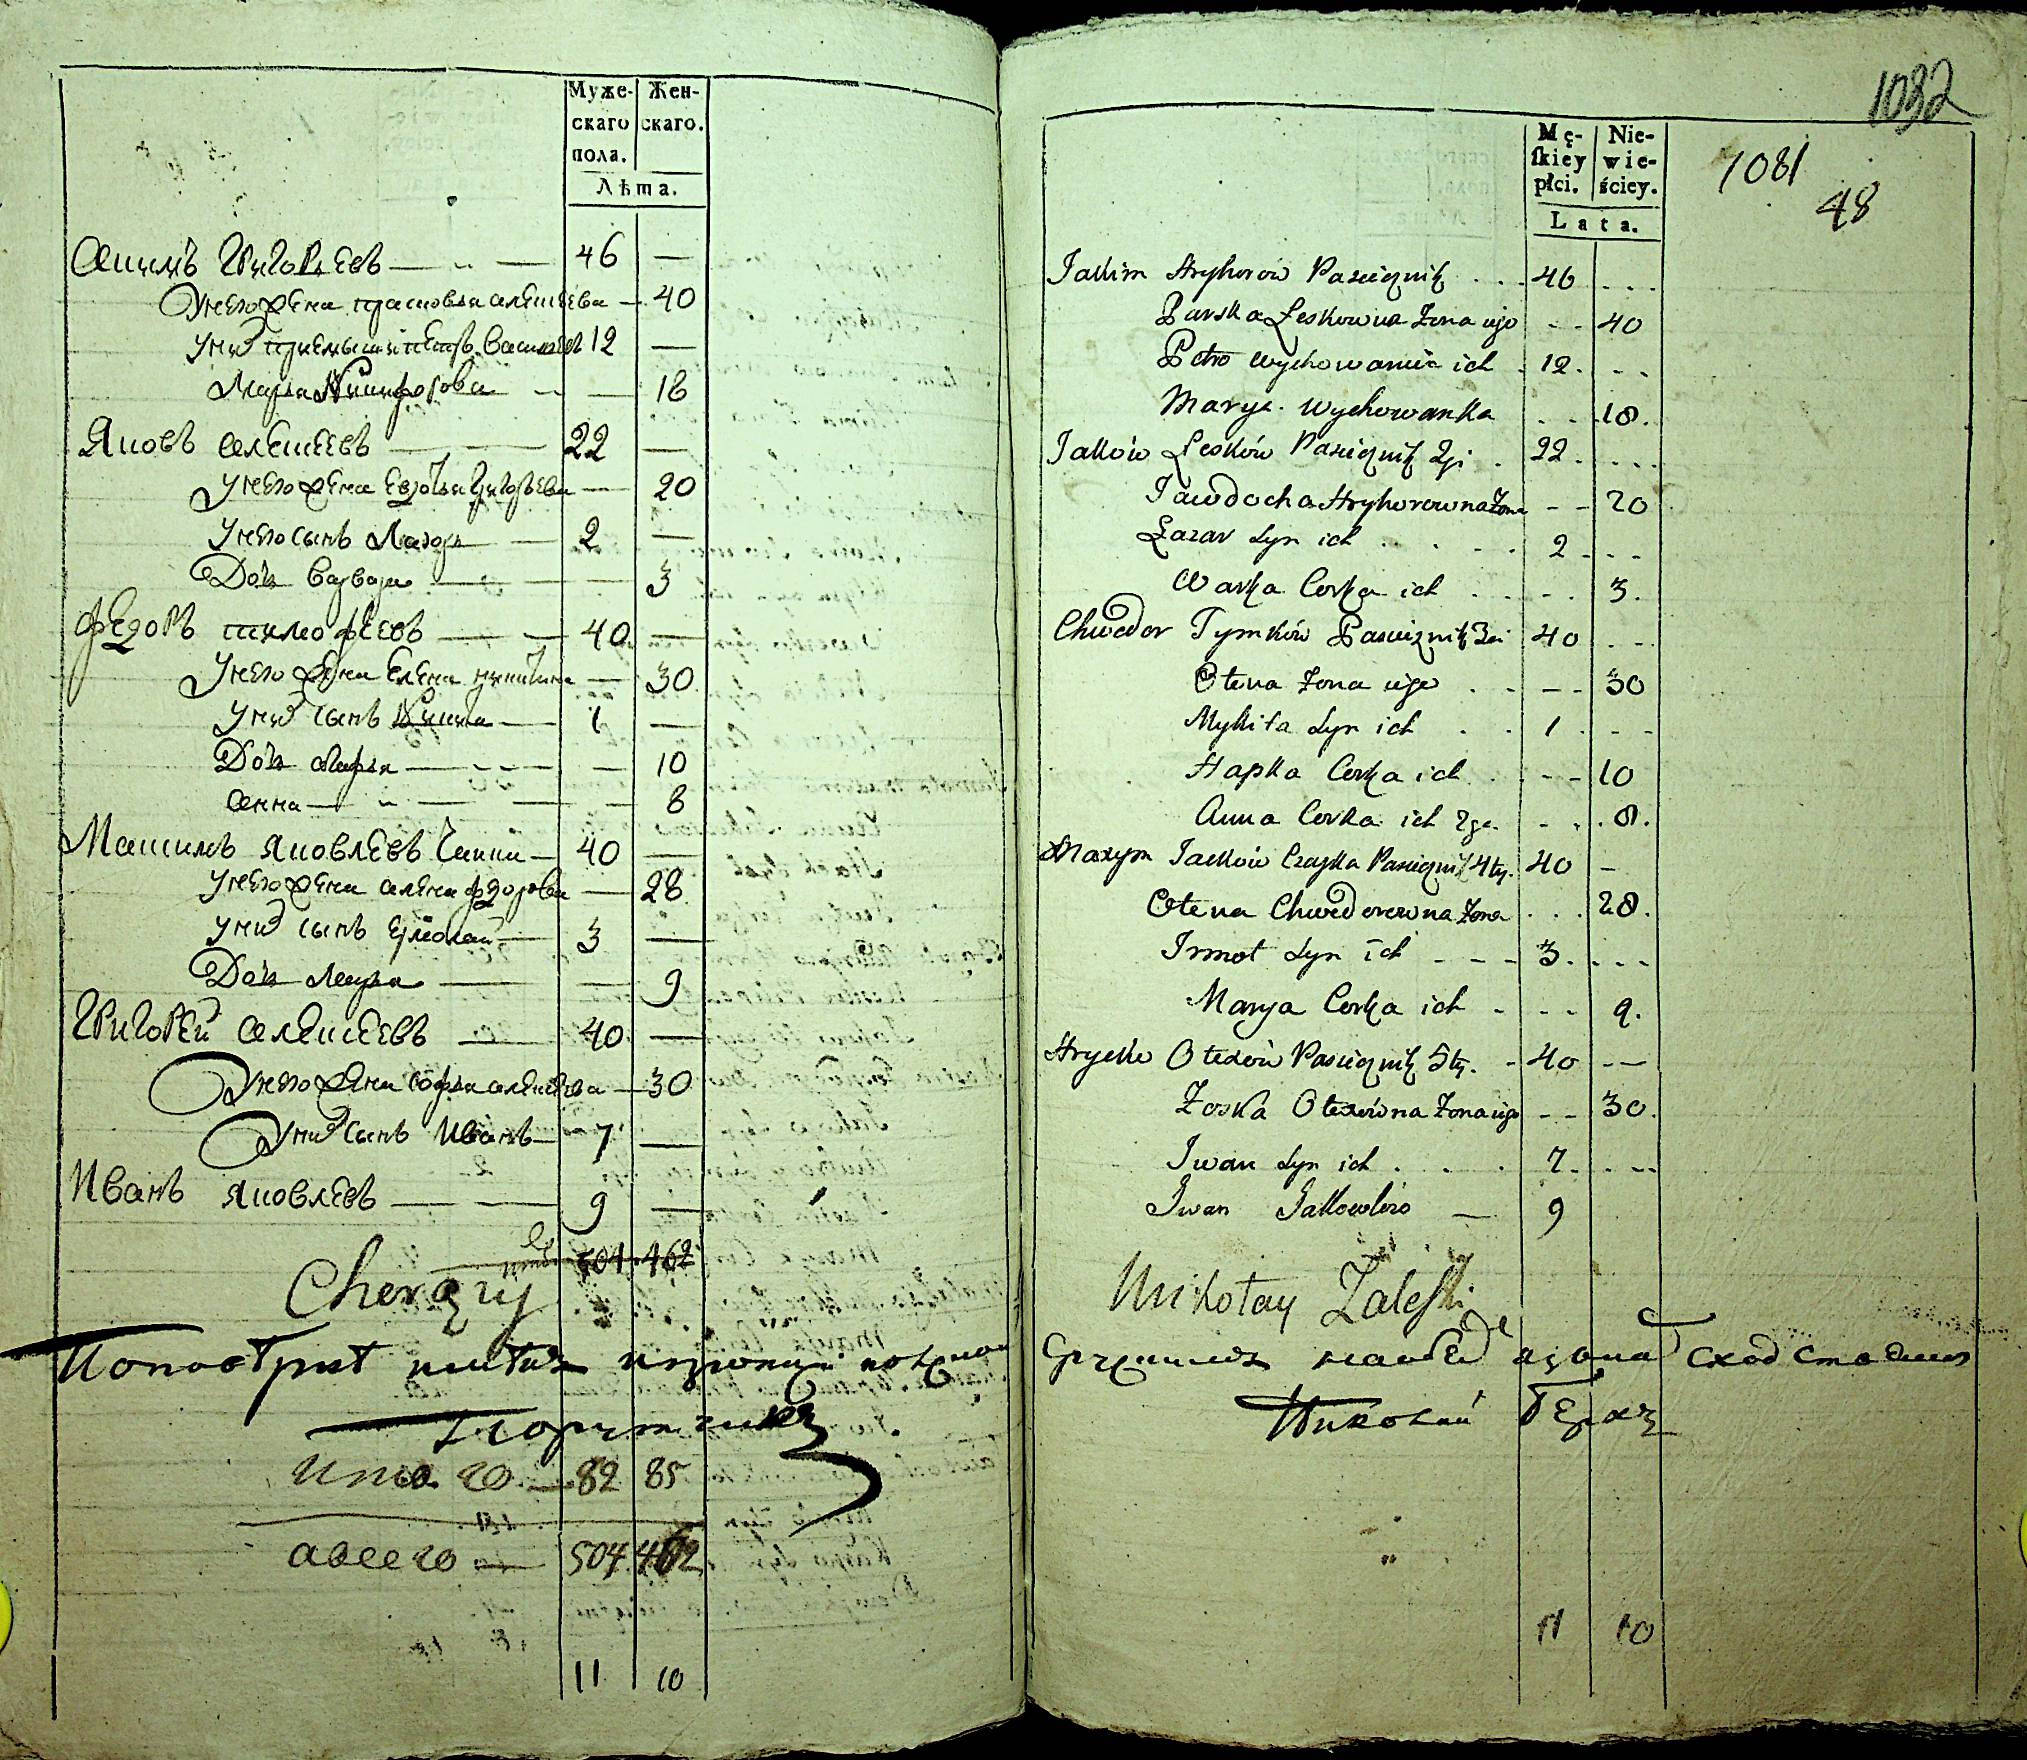 Муже- Жен-
скаго скаго.
пола.
Лѣта.
Якимъ Григорьевъ — 46 —
У него жена Прасковья Алексеева — 40
У них приемыши Петръ Васильевъ 12 —
Марья Никифорова — 18
Яковъ Алексеевъ — 22 —
У него жена Евдокья Григорьева — 20
У него сынъ Лазорь — 2 —
Дочь Варвара — 3
Федоръ Тимофеевъ — 40 —
У него жена Елена Никитина — 30
У них сынъ Никита — 1 —
Дочь Агафья — 10
Анна — 8
Максимъ Яковлевъ Чайка — 40 —
У него жена Алена Федорова — 28
У них сынъ Ермолай — 3 —
Дочь Марья — 9
Григорей Алексеевъ — 40 —
У него жена Софья Алексеева — 30
У них сынъ Иванъ — 7 —
Иванъ Яковлевъ — 9 —
504 462
Chorąży
Итого — 82 85
А всего — 504 462
11 10
1032
Mę- Nie-
ſkiey wie-
płci. ściey.
Lata.
1081
48
Jakim Hryhorow Pasiecznik . . . 46 . . .
Parska Leskowna Żona iego - - 40
Petro wychowaniec ich . 12 . - -
Marya wychowanka . . . 18.
Jaków Lesków Pasiecznik 2gi . 22 . . . .
Jawdocha Hryhorowna Żona - - 20
Łazar Syn ich . . . . 2 . - -
Warka Corka ich . . . . 3.
Chwedor Tymków Pasiecznik 3ci 40 . - -
Olena Żona iego . . - - 30
Mykita Syn ich . . 1 . - -
Hapka Corka ich . . - - 10
Anna Corka ich 2ga . - . . 8.
Maxym Jacków Czayka Pasiecznik 4ty. 40 -
Olena Chwedorowna Żona . . . 28.
Irmoł Syn ich - - - 3. . - -
Marya Corka ich - - - 9.
Hryćko Olexiów Pasiecznik 5ty. - 40 - -
Zoska Olexiówna Żona iego - - 30.
Iwan Syn ich . . . 7. . - -
Iwan Jakowliw — 9
Mikołay Zaleski
Николай
11 10